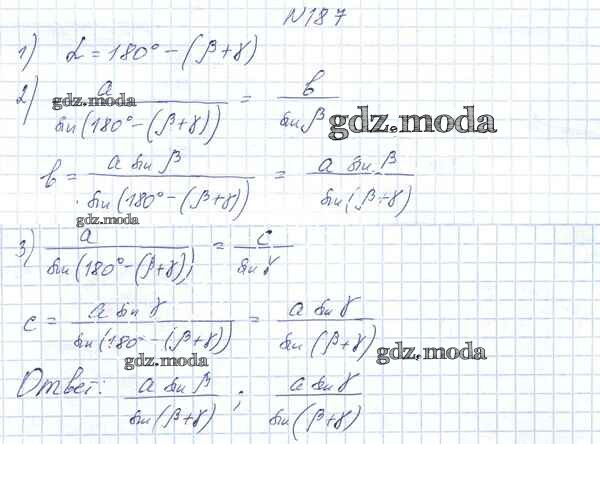 N187
1) α = 180° − (β + γ)
2) a / sin(180° − (β + γ)) = b / sin β
gdz.moda
gdz.moda
b = a sin β / sin(180° − (β + γ)) = a sin β / sin(β + γ)
gdz.moda
3) a / sin(180° − (β + γ)) = c / sin γ
c = a sin γ / sin(180 − (β + γ)) = a sin γ / sin(β + γ)
gdz.moda
gdz.moda
Ответ: a sin β / sin(β + γ) ; a sin γ / sin(β + γ)